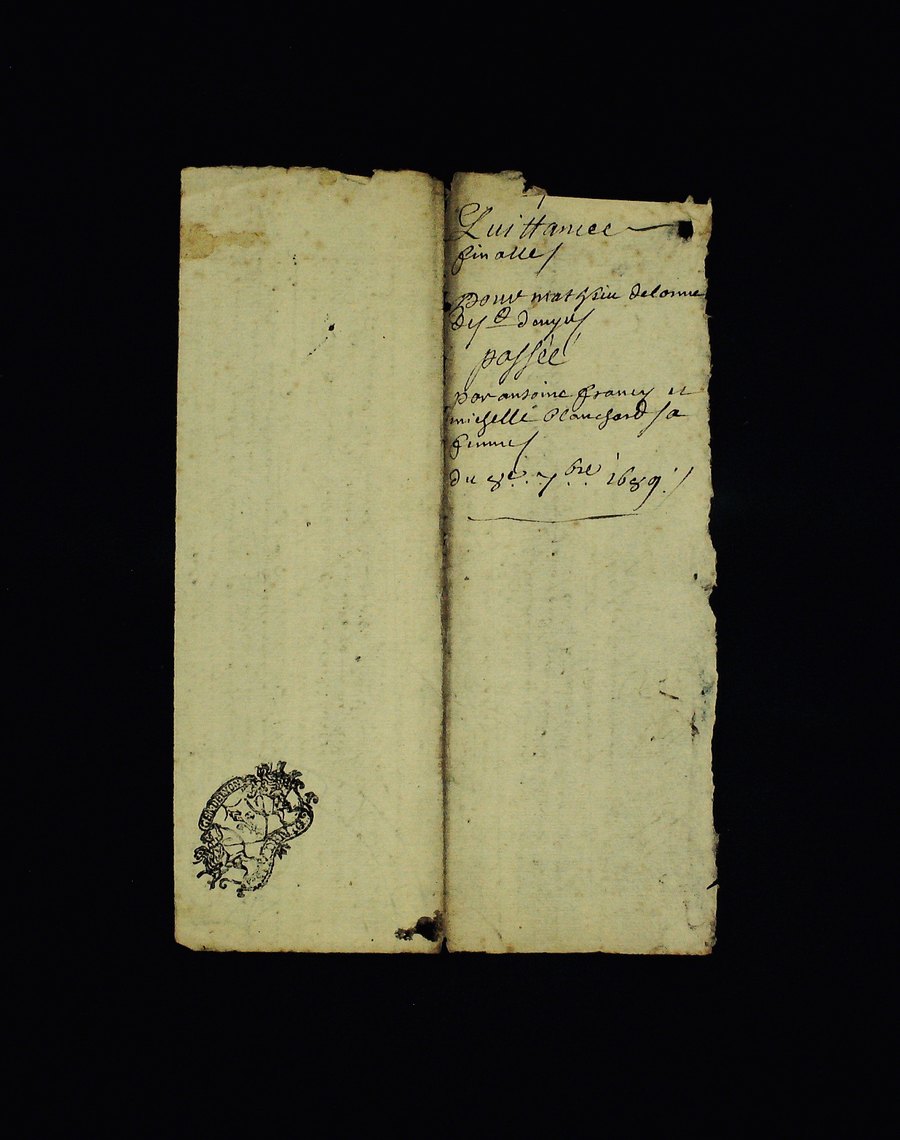 Quittance
finalle
pour mathieu delorme
de st
passée
par antoine francy et
michelle blanchard sa
femme
du 8e. 7bre 1689
GEN DE LYON